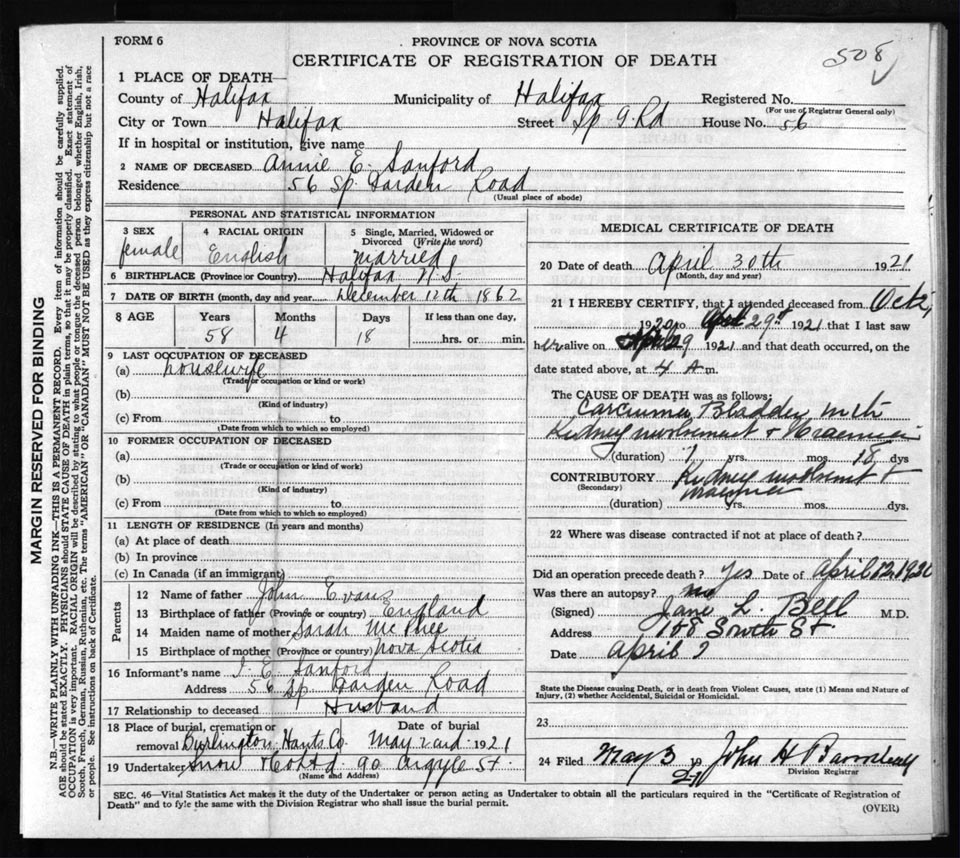 FORM 6
PROVINCE OF NOVA SCOTIA
CERTIFICATE OF REGISTRATION OF DEATH
508
1 PLACE OF DEATH—
County of Halifax Municipality of Halifax Registered No.
(For use of Registrar General only)
City or Town Halifax Street Sp. G. Rd House No. 56
If in hospital or institution, give name
2 NAME OF DECEASED Annie E. Sanford
Residence 56 Sp. Garden Road
(Usual place of abode)
PERSONAL AND STATISTICAL INFORMATION
3 SEX 4 RACIAL ORIGIN 5 Single, Married, Widowed or Divorced (Write the word)
female English Married
6 BIRTHPLACE (Province or Country) Halifax N.S.
7 DATE OF BIRTH (month, day and year) December 12th 1862
8 AGE Years Months Days If less than one day,
58 4 18 hrs. or min.
9 LAST OCCUPATION OF DECEASED
(a) housewife
(Trade or occupation or kind or work)
(b)
(Kind of industry)
(c) From to
(Date from which to which so employed)
10 FORMER OCCUPATION OF DECEASED
(a)
(Trade or occupation or kind of work)
(b)
(Kind of industry)
(c) From to
(Date from which to which so employed)
11 LENGTH OF RESIDENCE (In years and months)
(a) At place of death
(b) In province
(c) In Canada (if an immigrant)
Parents
12 Name of father John Evans
13 Birthplace of father (Province or country) England
14 Maiden name of mother Sarah McPhee
15 Birthplace of mother (Province or country) Nova Scotia
16 Informant's name E. Sanford
Address 56 Sp. Garden Road
17 Relationship to deceased Husband
18 Place of burial, cremation or removal Burlington Hants Co. Date of burial May 2nd 1921
19 Undertaker Snow & Co Ltd. 90 Argyle St.
(Name and Address)
MEDICAL CERTIFICATE OF DEATH
20 Date of death April 30th 1921
(Month, day and year)
21 I HEREBY CERTIFY, that I attended deceased from Oct.
1920 to 29th 1921 that I last saw
her alive on 29 1921 and that death occurred, on the
date stated above, at 4 A m.
The CAUSE OF DEATH was as follows:
Carcinoma Bladder with
Kidney involvement & Uraemia
(duration) 1 yrs. mos. 18 dys
CONTRIBUTORY Kidney involvement &
(Secondary)
(duration) yrs. mos. dys.
22 Where was disease contracted if not at place of death?
Did an operation precede death? Yes Date of April 12 1920
Was there an autopsy? no
(Signed) Jane L. Bell M.D.
Address 158 South St
Date April
State the Disease causing Death, or in death from Violent Causes, state (1) Means and Nature of
Injury, (2) whether Accidental, Suicidal or Homicidal.
23
24 Filed May 3 19 21 John H
Division Registrar
SEC. 46—Vital Statistics Act makes it the duty of the Undertaker or person acting as Undertaker to obtain all the particulars required in the "Certificate of Registration of
Death" and to fyle the same with the Division Registrar who shall issue the burial permit.
(OVER)
MARGIN RESERVED FOR BINDING
N.B.—WRITE PLAINLY WITH UNFADING INK—THIS IS A PERMANENT RECORD. Every item of information should be carefully supplied.
AGE should be stated EXACTLY. PHYSICIANS should STATE CAUSE OF DEATH in plain terms, so that it may be properly classified. Exact statement of
OCCUPATION is very important. RACIAL ORIGIN will be described by stating to what people or tongue the deceased person belonged whether English, Irish,
Scotch, French, German, Russian, Ruthenian, etc. The terms "AMERICAN" OR "CANADIAN" MUST NOT BE USED as they express citizenship but not a race
or people. See instructions on back of Certificate.